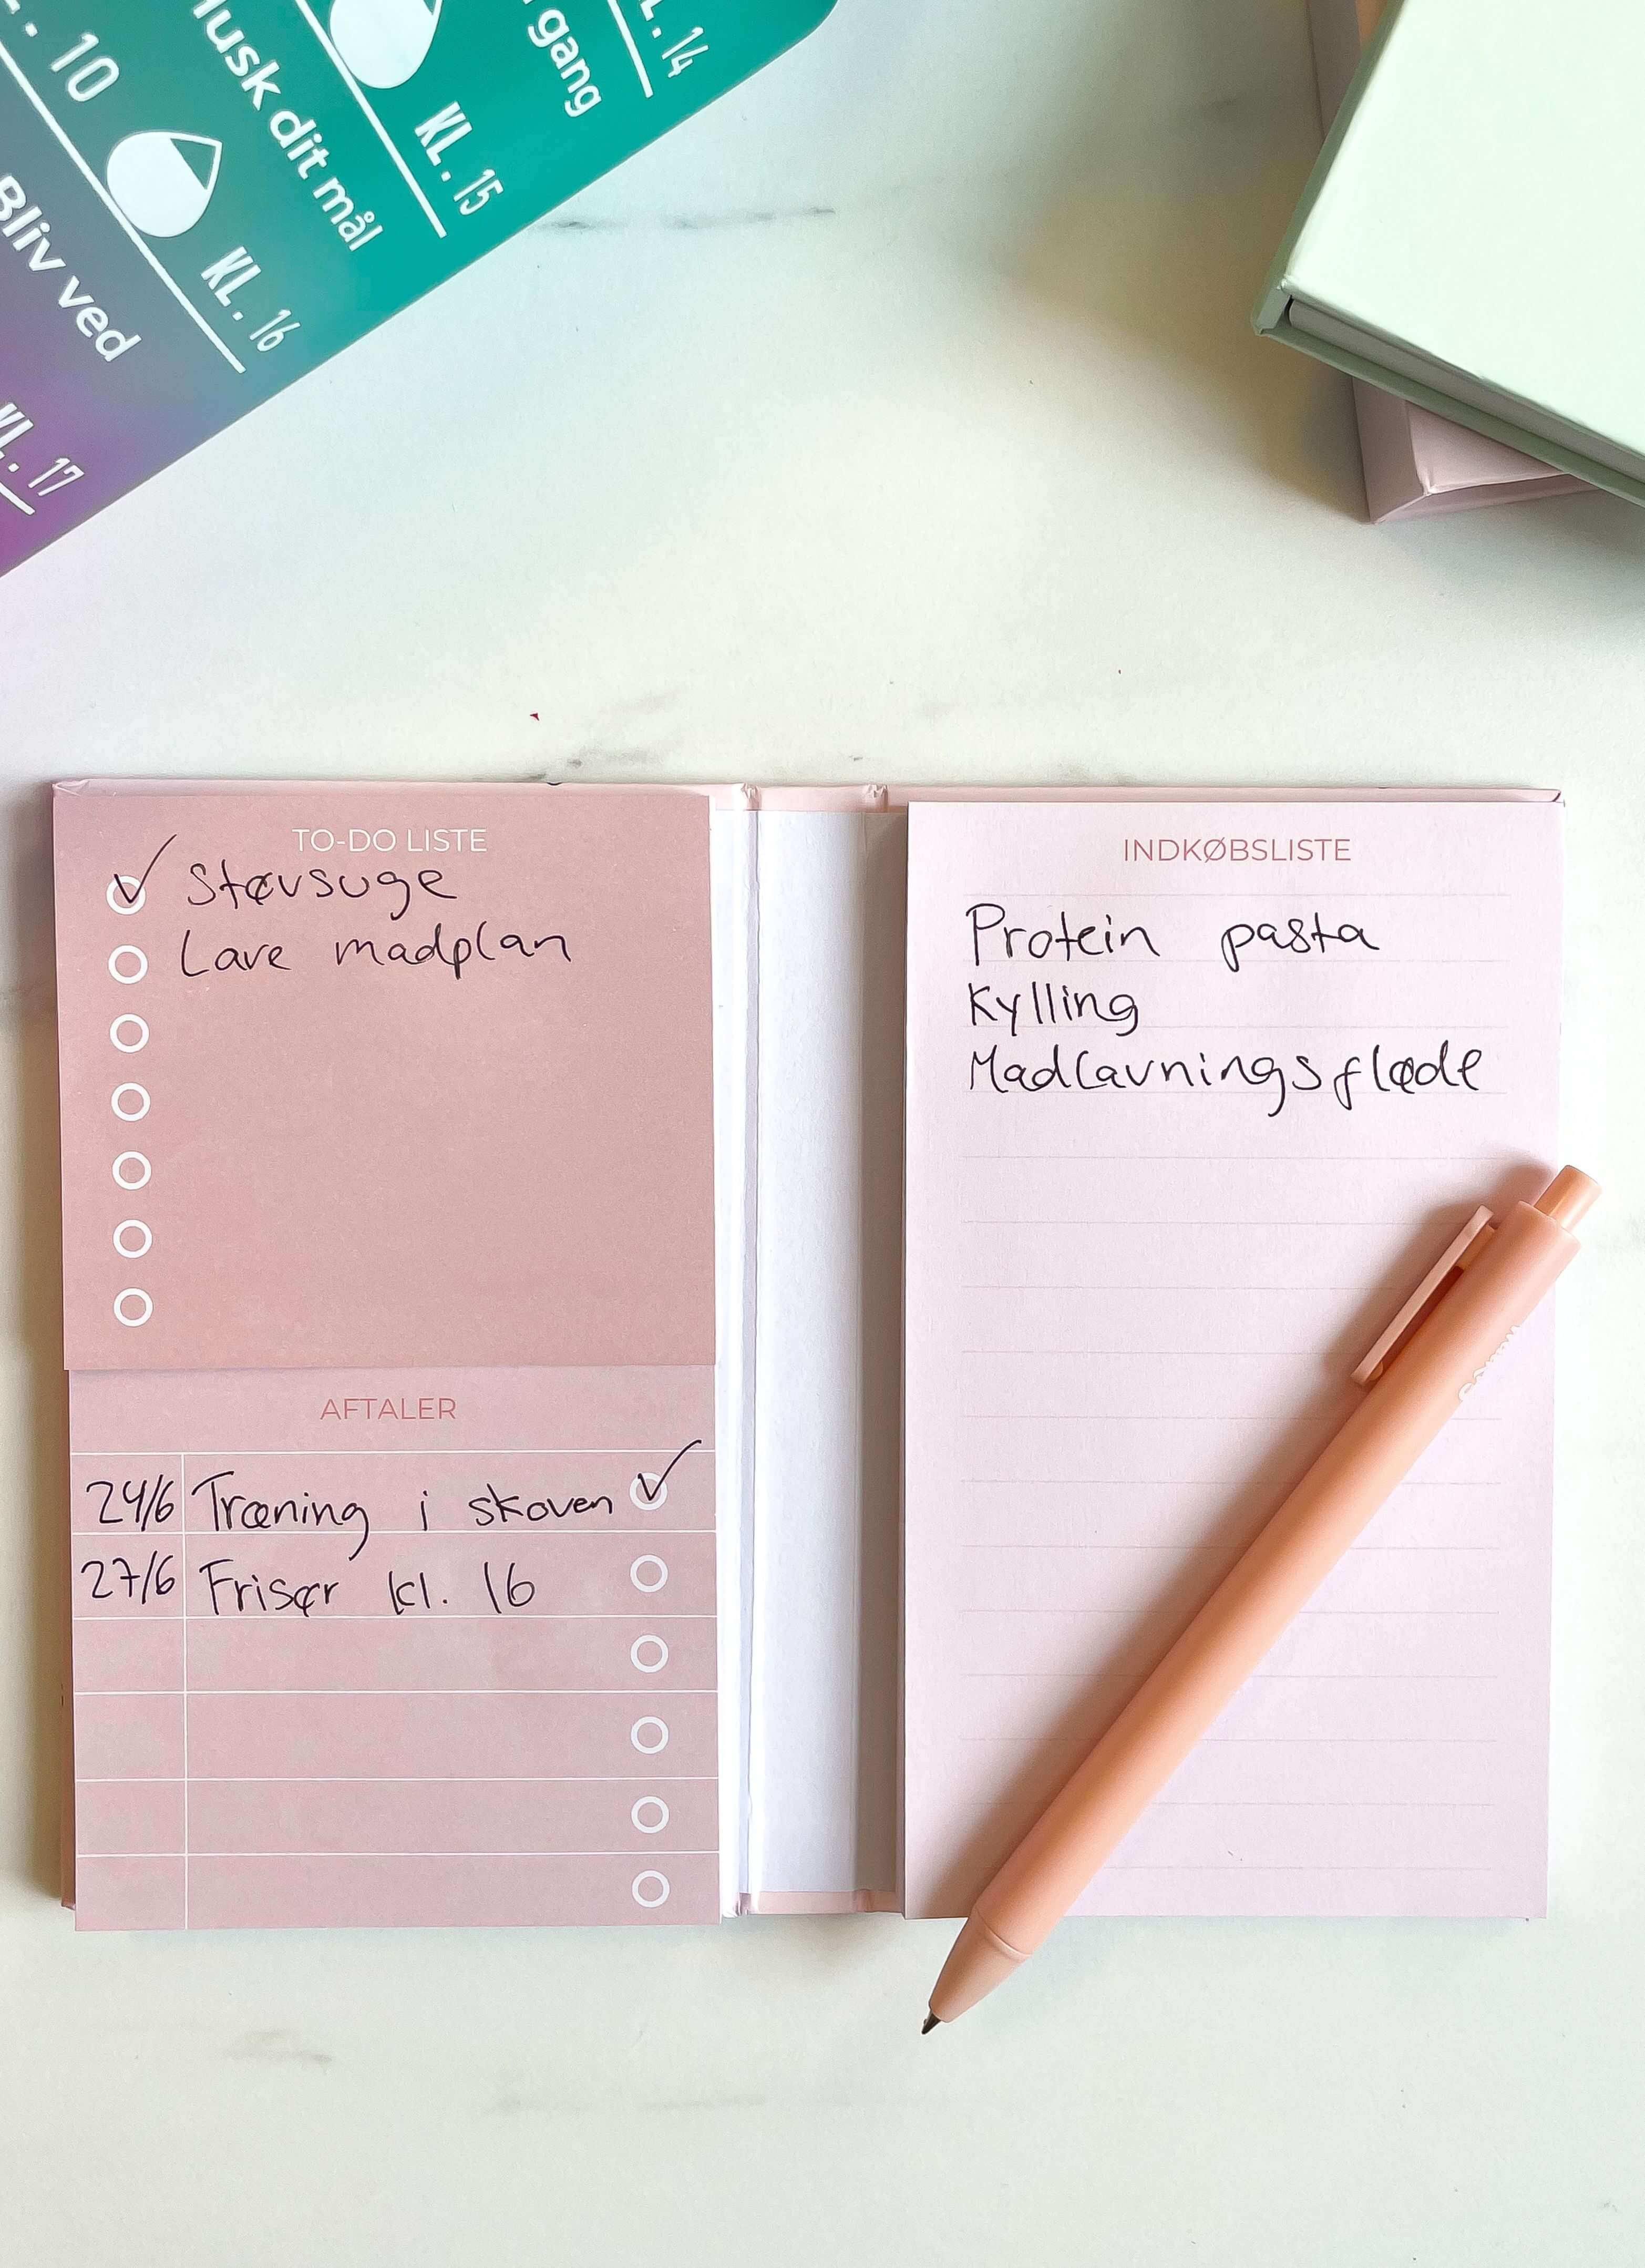 10
Husk dit mål
gang
KL. 14
KL. 15
KL. 16
Bliv ved
KL. 17
TO-DO LISTE
Støvsuge
Lave madplan
AFTALER
24/6 Træning i skoven
27/6 Frisør kl. 16
INDKØBSLISTE
Protein pasta
Kylling
Madlavningsfløde